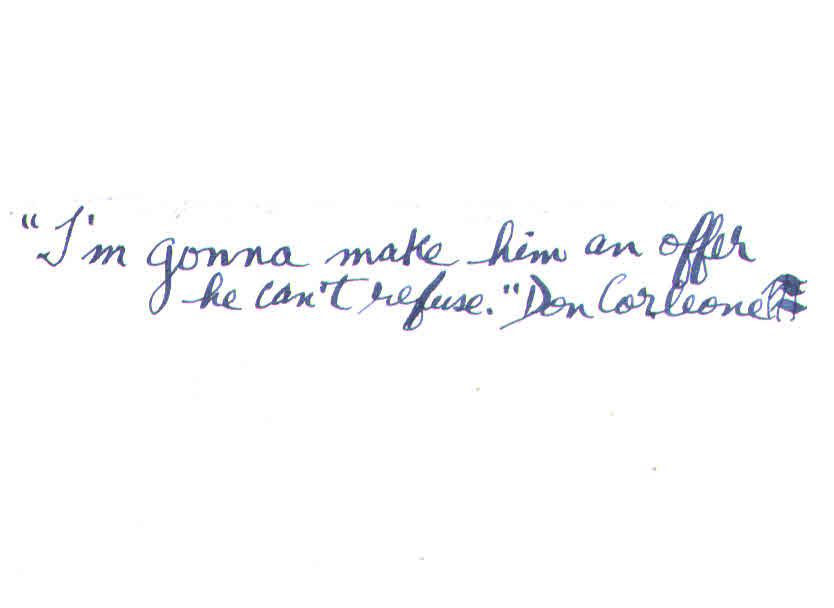 "I'm gonna make him an offer
he can't refuse." Don Corleone